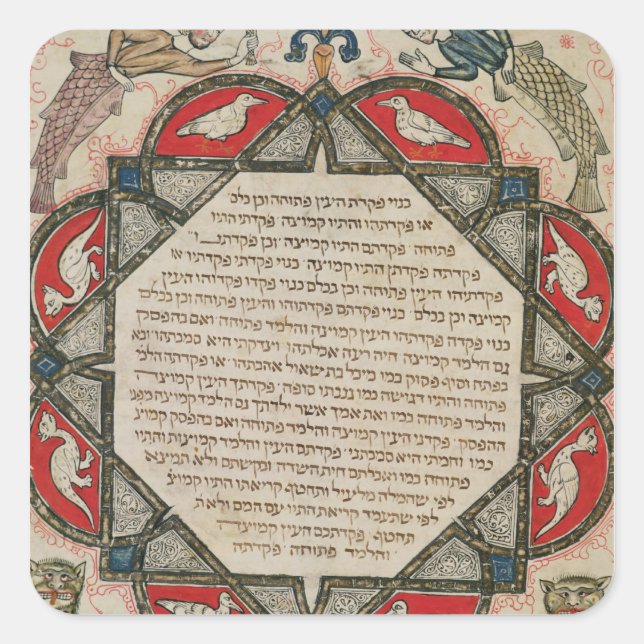 כנוי פקדת העין פתוחה וכן כלם
או פקדתהו והתיו קמוצה פקדתי התיו
פתוחה׳ פקדתם התיו קמוצה וכן פקדתן
פקדתה פקדתן התיו קמוצה׳ כנוי פקדתי פקדתיו או
פקדתיהו העין פתוחה וכן בכלם כנוי פקדו פקדוהו העין
קמוצה וכן בכלם׳ כנוי פקדתם פקדתוהו והעין פתוחה וכן בכלם
כנוי פקדה פקדתו העין קמוצה והלמד פתוחה ואם נה הפסק
גם הלמד קמוצה היה רעה אכלתהו׳ וצדקתי היא סמכתהו ובא
בפתח וסוף פסוק כמו מיכל בת שאול אהבתהו׳ או פקדתה הלמ׳
פתוחה והתיו דגושה כמו גנבתו סופה׳ פקדתך העין קמוצה
והלמד פתוחה כמו ואת אמך אשר ילדתך גם הלמד קמוצה מפני
ההפסק׳ פקדתני העין קמוצה והלמד פתוחה ואם הפסק קמוצ
כמו וחמתי היא סמכתני׳ פקדתם העין והלמד קמוצות והתיו
פתוחה כמו ואכלתם חית השדה ומבקשתם ולא תמצא
לפי שהמלה מלעיל ותחטף קריאתו התיו קמוצ
לפי שתעמד קריאת התיו עם המם ולא ת
תחטף׳ פקדתכם העין קמוצה
והלמד פתוחה׳ פקדתה